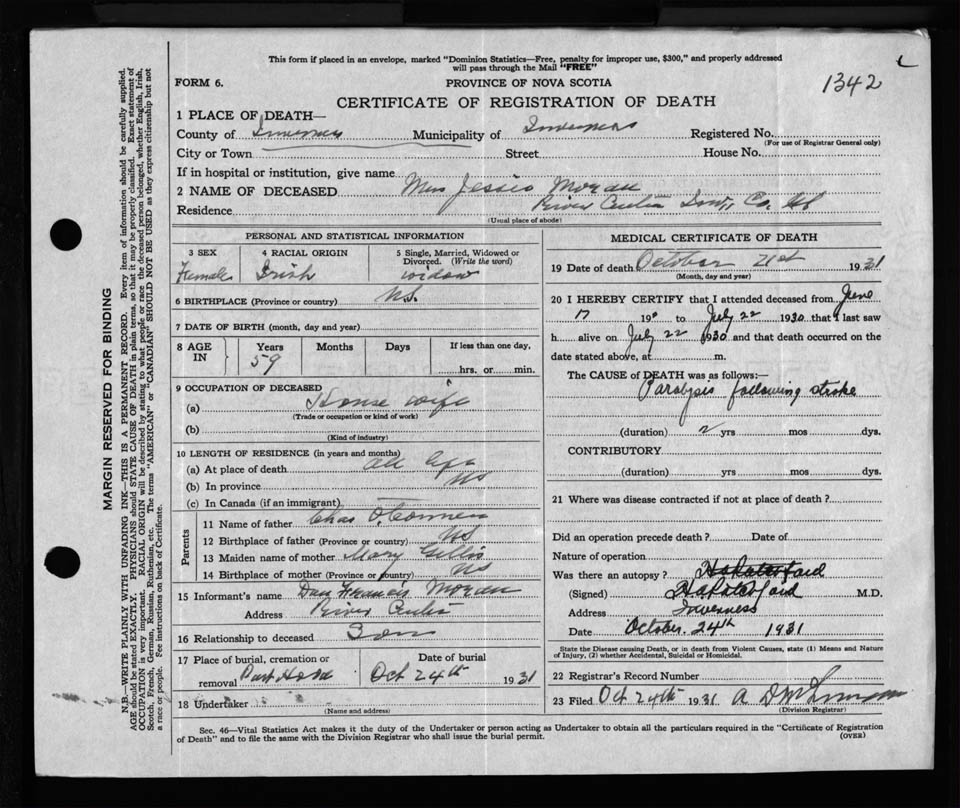 This form if placed in an envelope, marked "Dominion Statistics—Free, penalty for improper use, $300," and properly addressed
will pass through the Mail "FREE"
FORM 6.
PROVINCE OF NOVA SCOTIA
1342
CERTIFICATE OF REGISTRATION OF DEATH
1 PLACE OF DEATH—
County of Inverness Municipality of Inverness Registered No.
(For use of Registrar General only)
City or Town Street House No.
If in hospital or institution, give name
2 NAME OF DECEASED Mrs Jessie Moran
Residence River Inv. Co. NS
(Usual place of abode)
PERSONAL AND STATISTICAL INFORMATION
3 SEX
Female
4 RACIAL ORIGIN
Irish
5 Single, Married, Widowed or
Divorced. (Write the word)
widow
6 BIRTHPLACE (Province or country) N.S.
7 DATE OF BIRTH (month, day and year)
8 AGE
IN
Years
59
Months
Days
If less than one day,
hrs. or min.
9 OCCUPATION OF DECEASED
(a) House wife
(Trade or occupation or kind of work)
(b)
(Kind of industry)
10 LENGTH OF RESIDENCE (in years and months)
(a) At place of death all life
(b) In province NS
(c) In Canada (if an immigrant)
Parents
11 Name of father Chas
12 Birthplace of father (Province or country) NS
13 Maiden name of mother Mary Gillis
14 Birthplace of mother (Province or country) NS
15 Informant's name Dan Francis Moran
Address River
16 Relationship to deceased Son
17 Place of burial, cremation or
removal Port Hood
Date of burial
Oct 24th 1931
18 Undertaker
(Name and address)
MEDICAL CERTIFICATE OF DEATH
19 Date of death October 21st 1931
(Month, day and year)
20 I HEREBY CERTIFY that I attended deceased from June
17 19 to July 22 1930 that I last saw
h alive on July 22 1930 and that death occurred on the
date stated above, at m.
The CAUSE of DEATH was as follows:—
Paralysis following stroke
(duration) 2 yrs mos dys.
CONTRIBUTORY
(duration) yrs mos dys.
21 Where was disease contracted if not at place of death?
Did an operation precede death? Date of
Nature of operation
Was there an autopsy?
(Signed) M.D.
Address Inverness
Date October. 24th 1931
State the Disease causing Death, or in death from Violent Causes, state (1) Means and Nature
of Injury, (2) whether Accidental, Suicidal or Homicidal.
22 Registrar's Record Number
23 Filed Oct 24th 1931 A D
(Division Registrar)
Sec. 46—Vital Statistics Act makes it the duty of the Undertaker or person acting as Undertaker to obtain all the particulars required in the "Certificate of Registration
of Death" and to file the same with the Division Registrar who shall issue the burial permit.
(OVER)
MARGIN RESERVED FOR BINDING
N.B.—WRITE PLAINLY WITH UNFADING INK—THIS IS A PERMANENT RECORD. Every item of information should be carefully supplied.
AGE should be stated EXACTLY. PHYSICIANS should STATE CAUSE OF DEATH in plain terms, so that it may be properly classified. Exact statement of
OCCUPATION is very important. RACIAL ORIGIN will be described by stating to what people or race the deceased person belonged, whether English, Irish,
Scotch, French, German, Russian, Ruthenian, etc. The terms "AMERICAN" or "CANADIAN" SHOULD NOT BE USED as they express citizenship but not
a race or people. See instructions on back of Certificate.